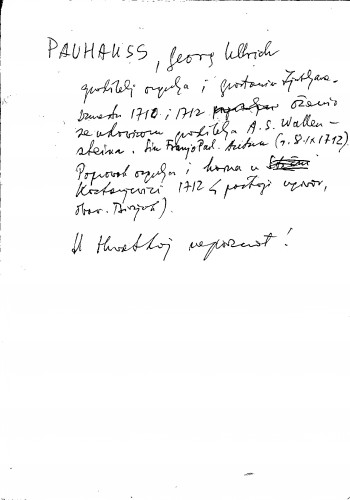 PAUHAUSS, Georg Ullrich
graditelj orgulja i građanin Ljubljane.
Između 1710. i 1712 oženio
se udovicom graditelja A. S. Wallen-
steina. Sin Franjo Pal. Antun (r. 8. IX 1712).
Popravak orgulja i korna u
Kostanjevici 1712 (postoji ugovor,
obav.
U Hrvatskoj nepoznat!